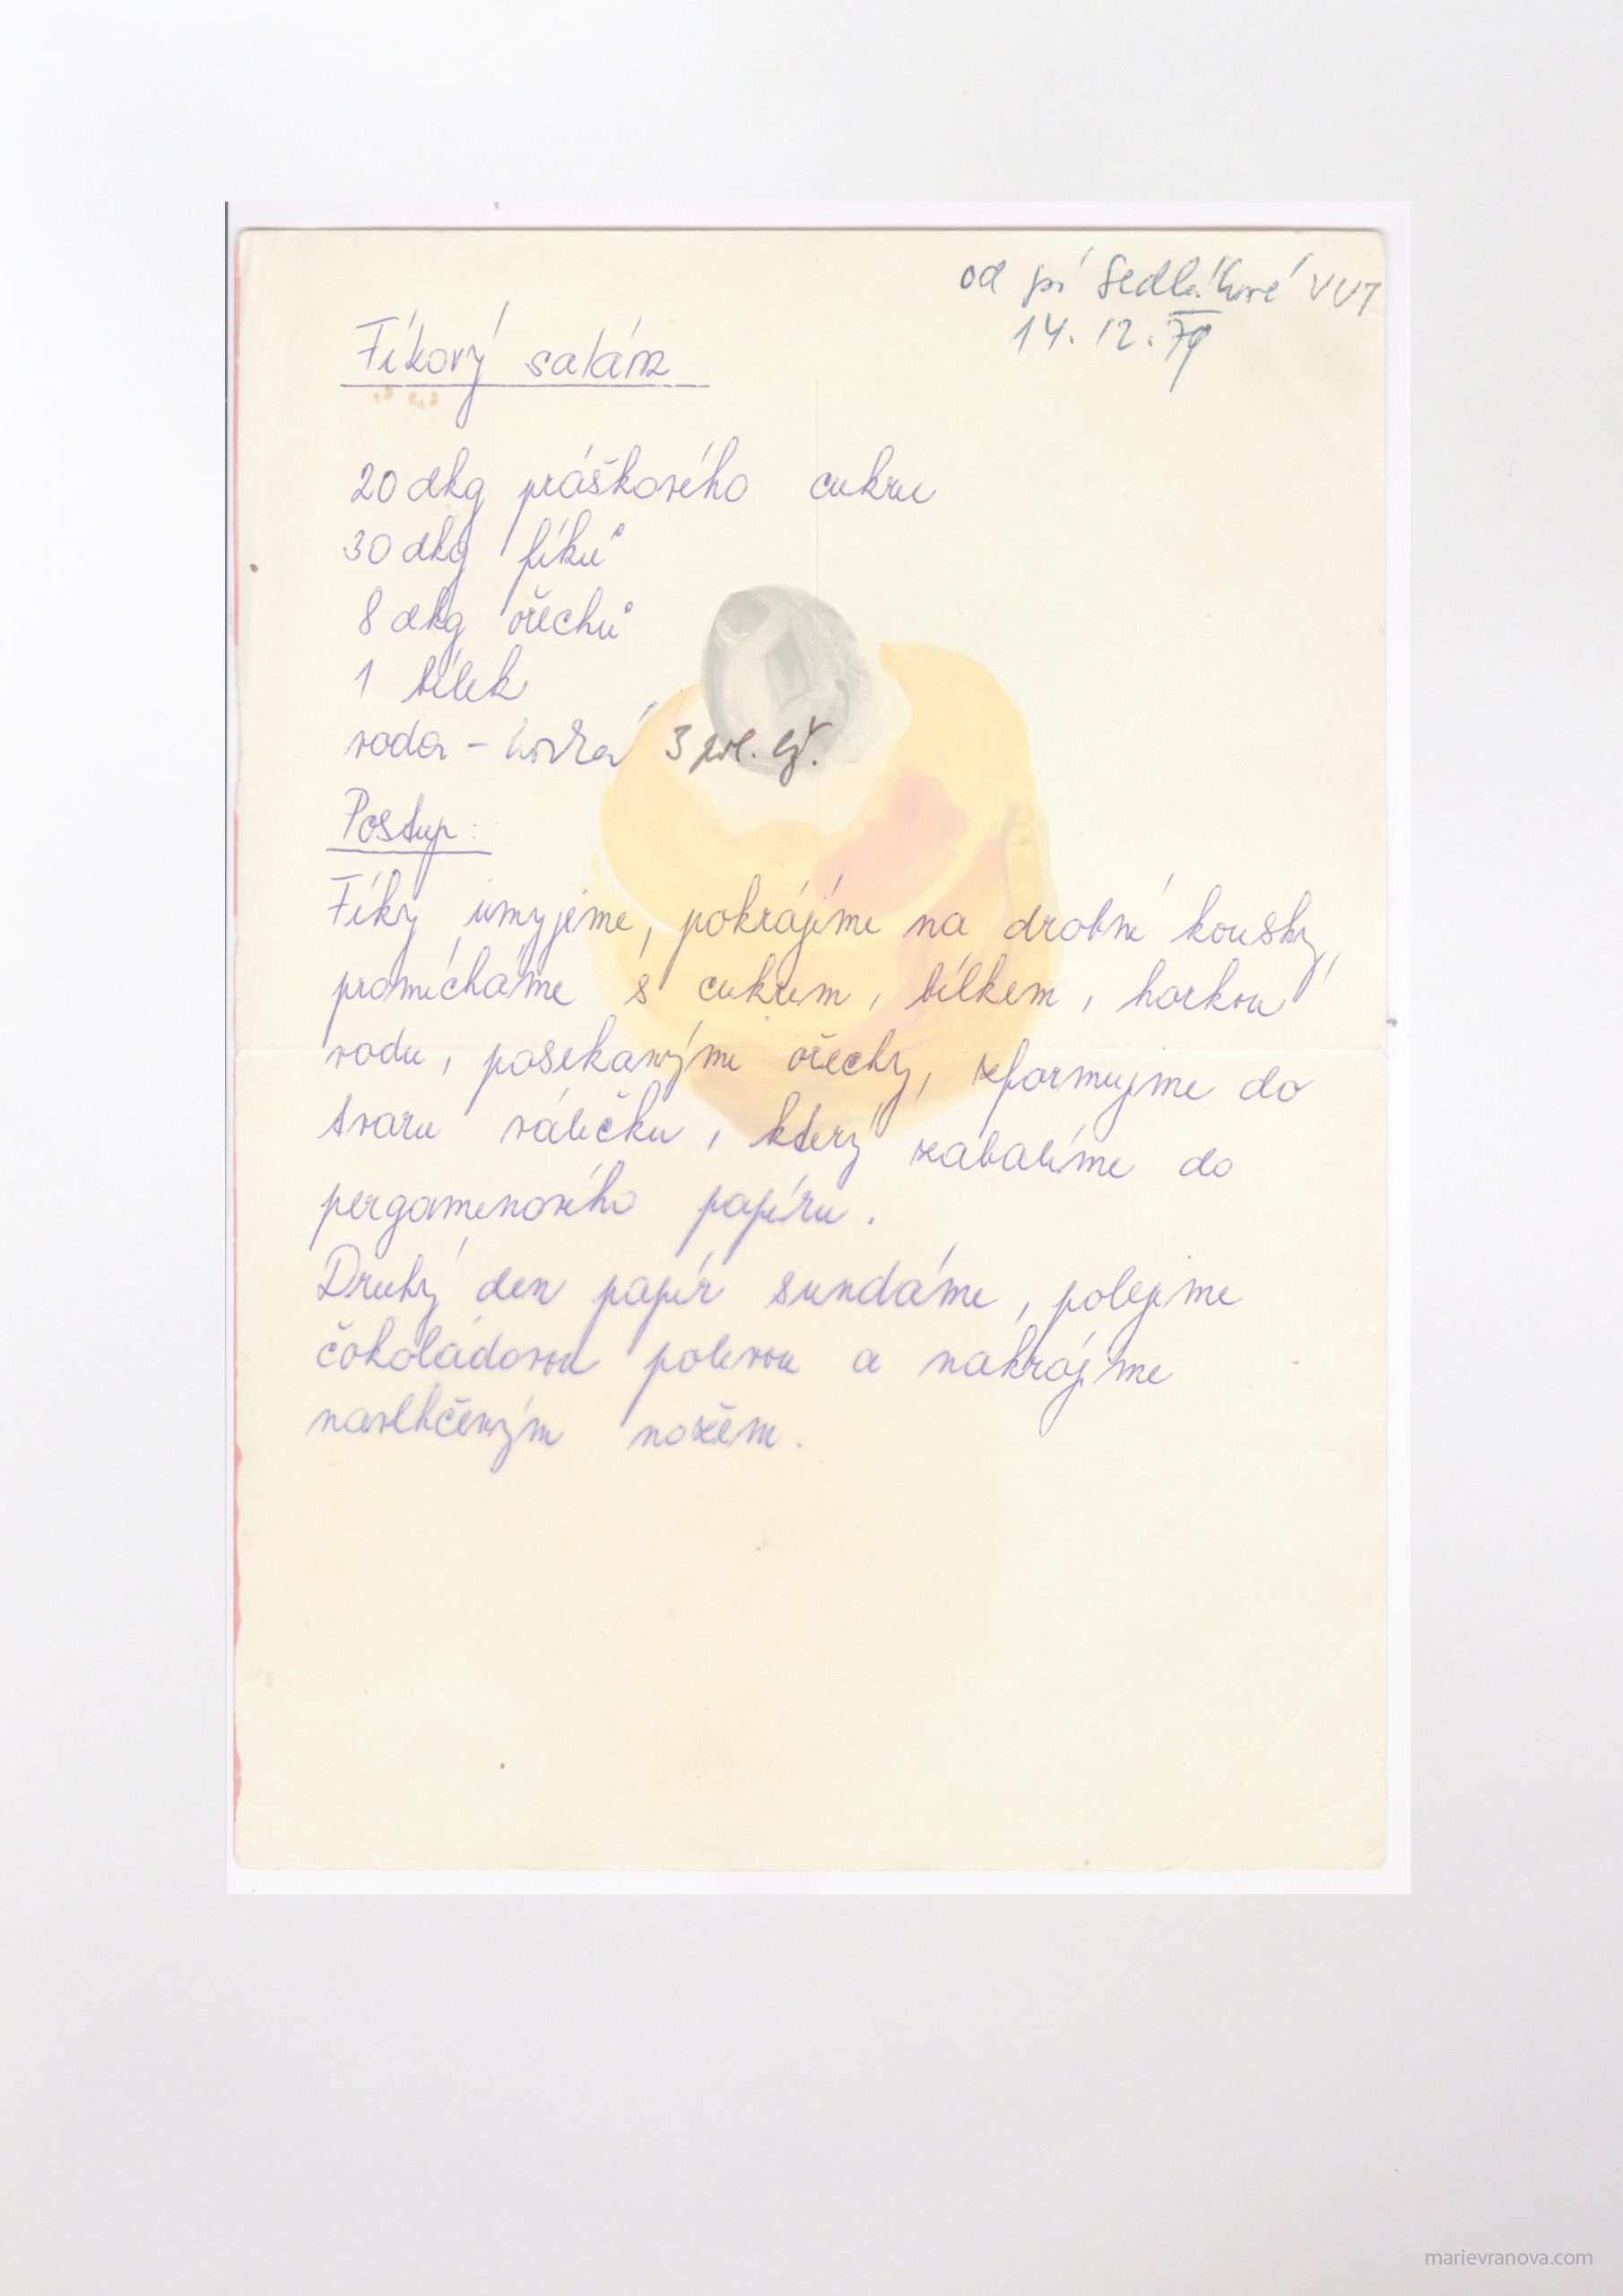 od pí Sedlákové VUT
14. 12. 79
Fíkový salám
20 dkg práškového cukru
30 dkg fíků
8 dkg ořechů
1 bílek
voda - horká 3 pol. lž.
Postup:
Fíky umyjeme, pokrájíme na drobné kousky,
promícháme s cukrem, bílkem, horkou
vodu, posekanými ořechy, zformujme do
tvaru válečku, který zabalíme do
pergamenového papíru.
Druhý den papír sundáme, polejeme
čokoládovou polevou a nakrájíme
navlhčeným nožem.
marievranova.com